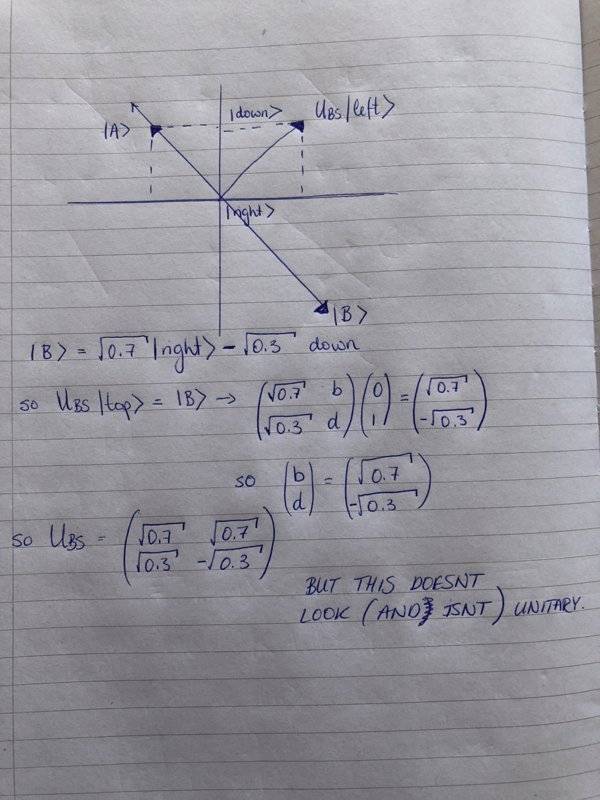 |down> U_BS |left>
|A>
|right>
|B>
|B> = √0.7 |right> - √0.3 down
so U_BS |top> = |B> → (√0.7 b √0.3 d) (0 1) = (√0.7 -√0.3)
so (b d) = (√0.7 -√0.3)
so U_BS = (√0.7 √0.7 √0.3 -√0.3)
BUT THIS DOESNT
LOOK (AND ISNT) UNITARY.